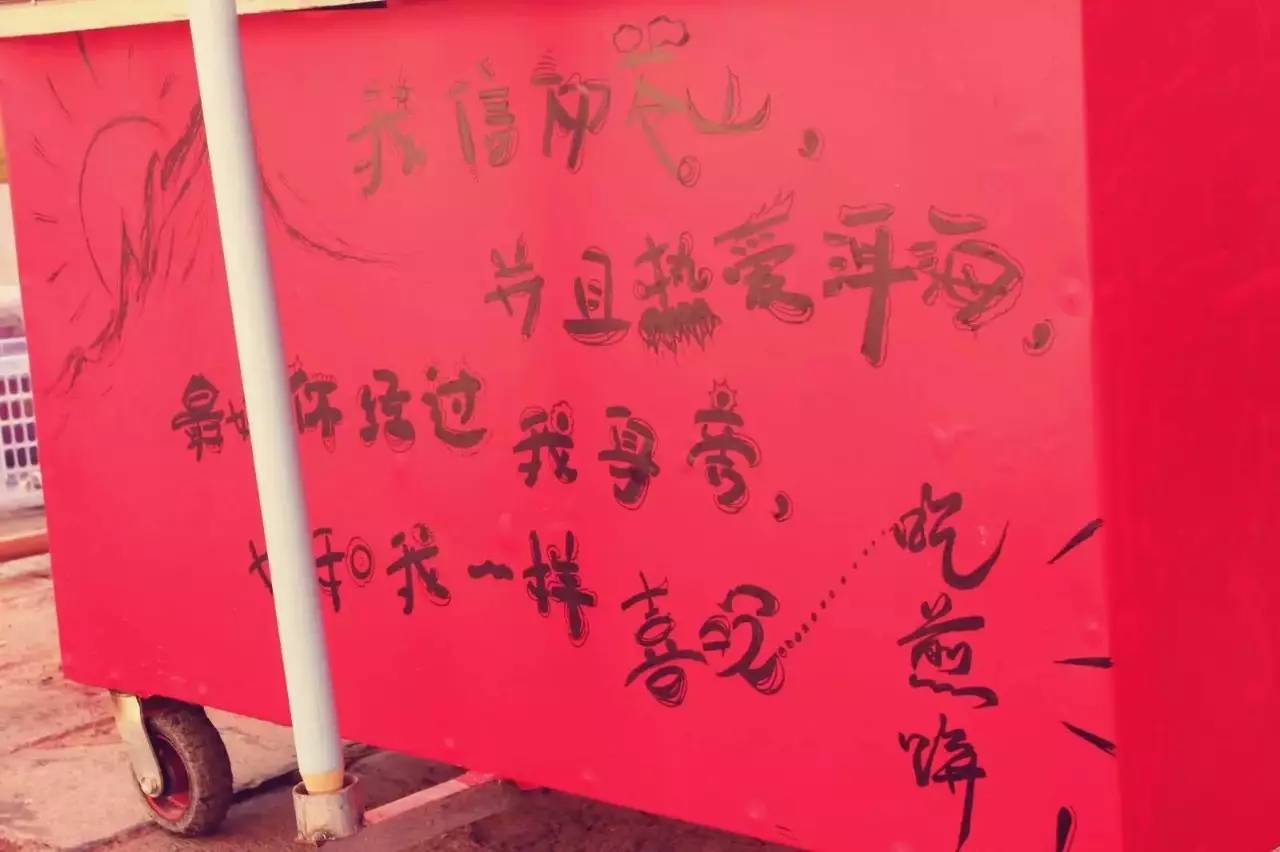 我信仰苍山，
并且热爱洱海，
最好你经过我身旁，
也和我一样喜欢
吃煎饼！